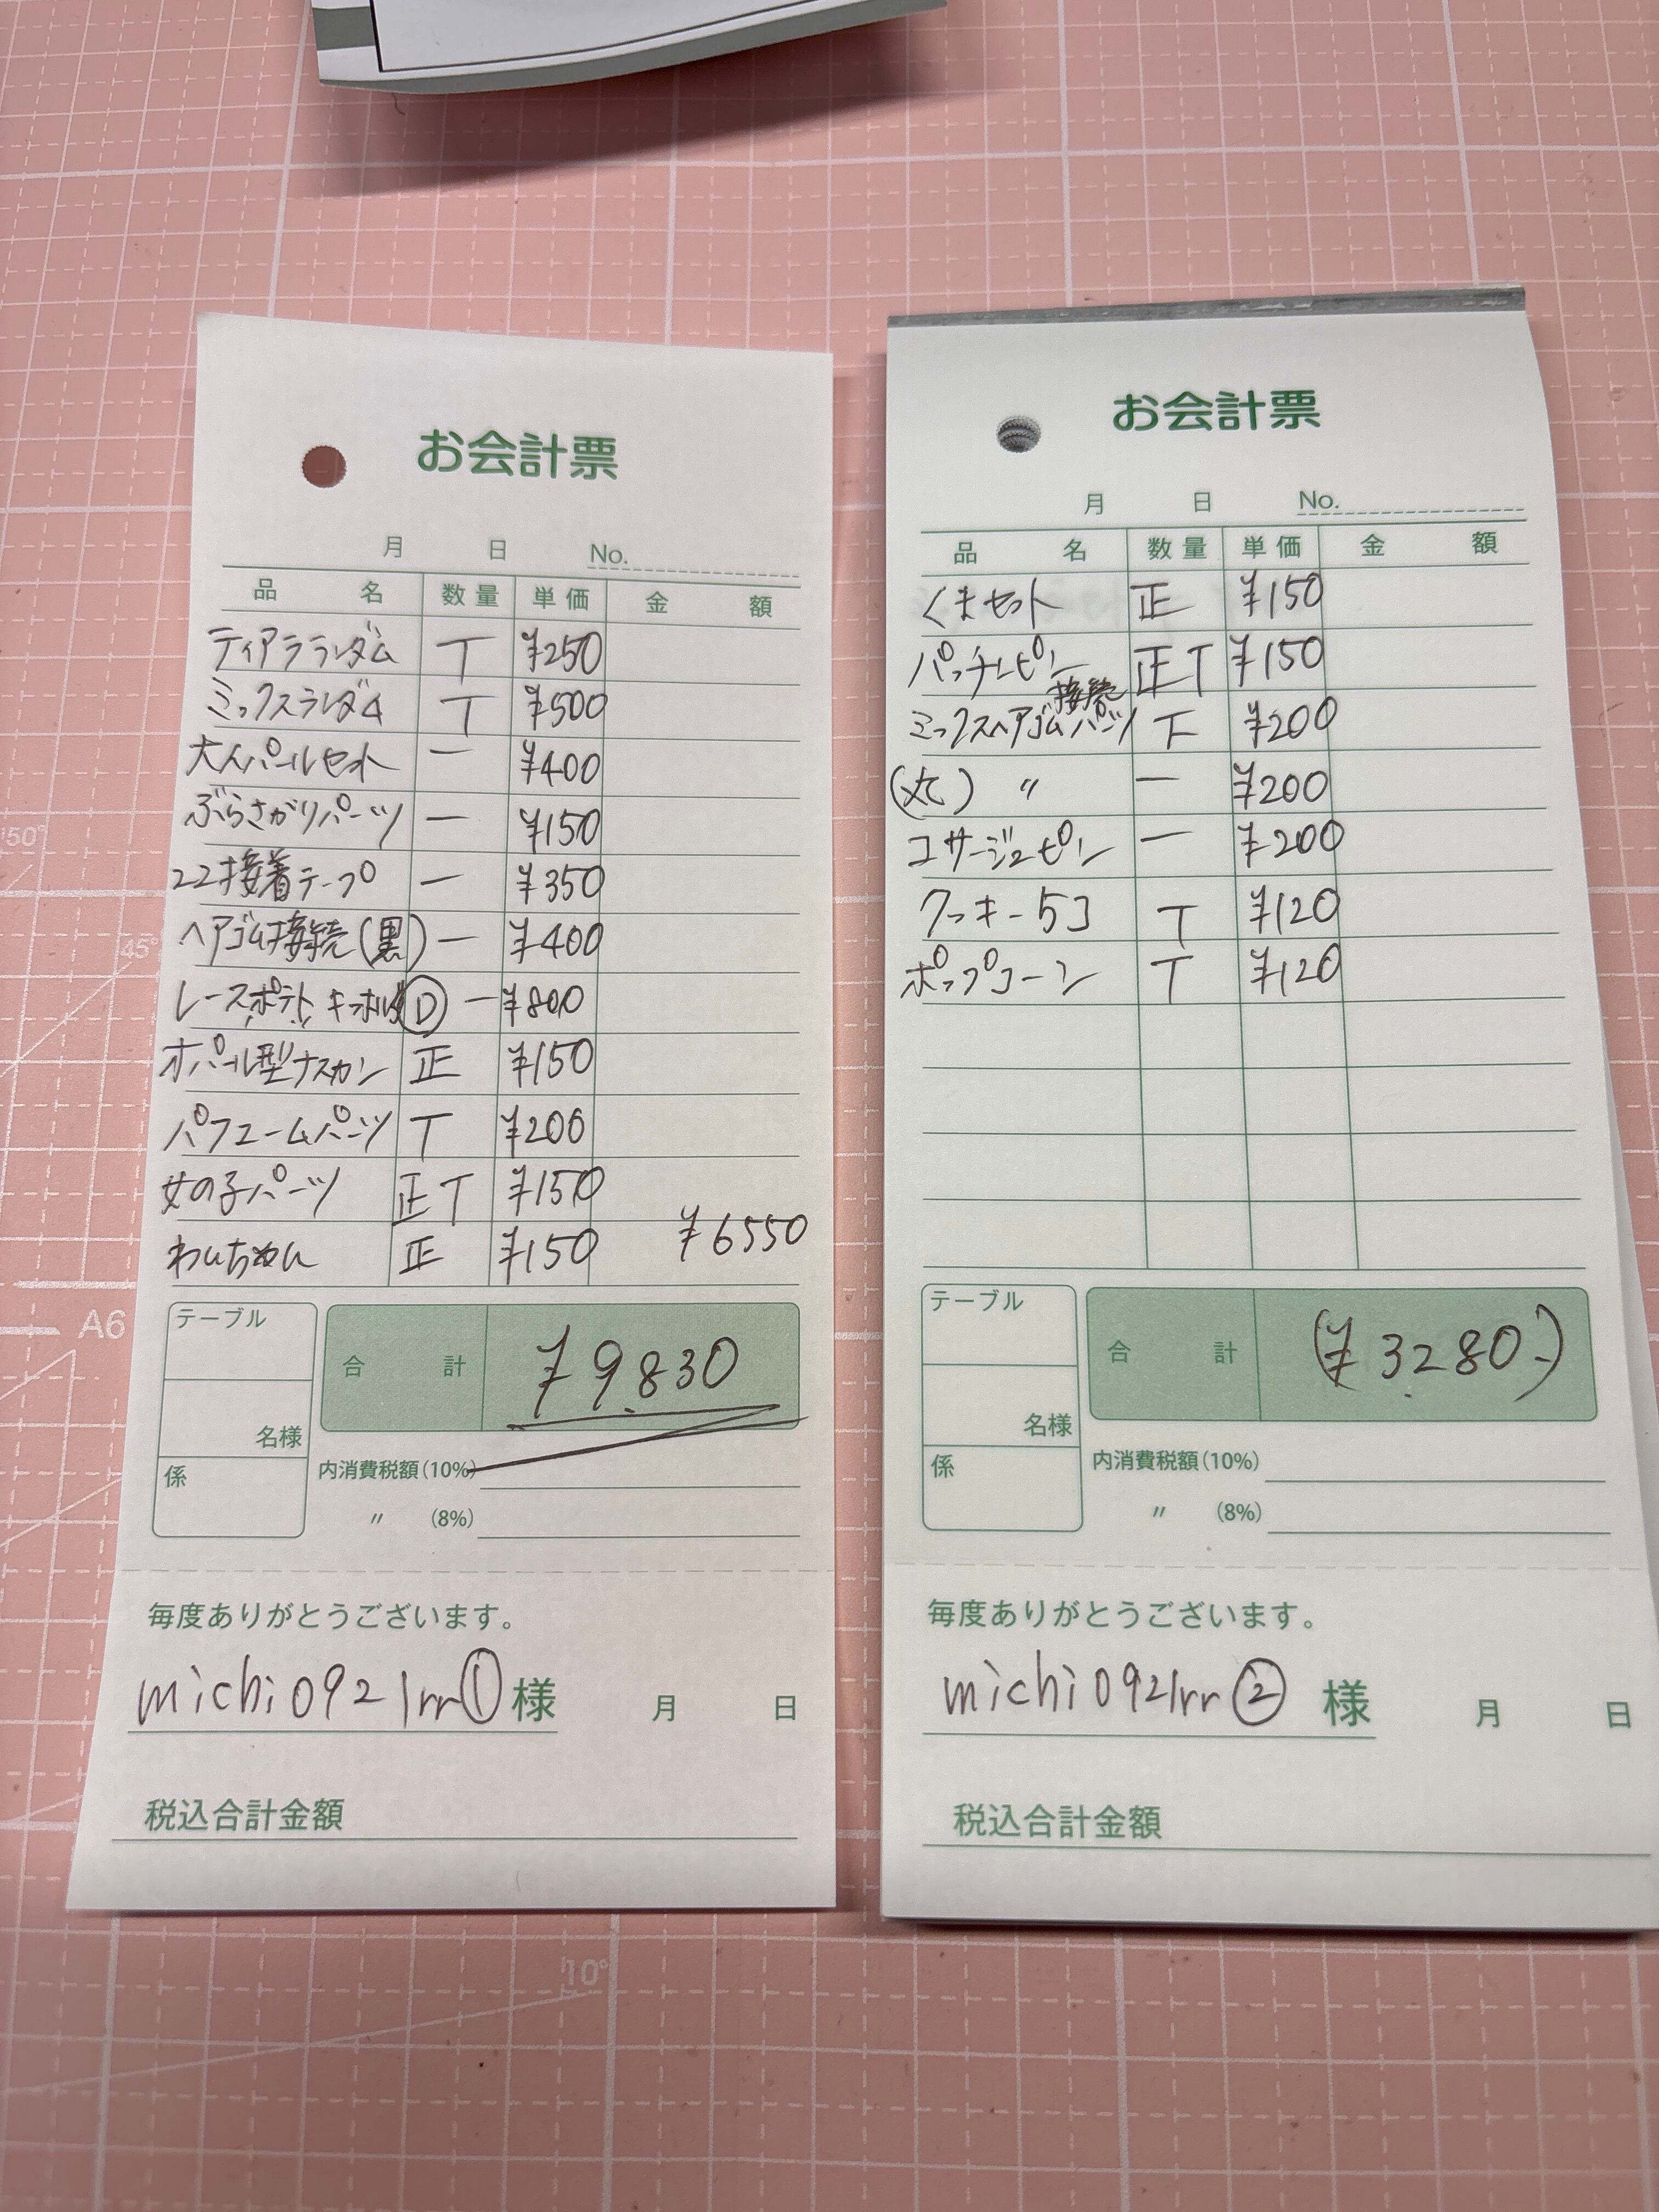 お会計票
月 日 No.
品名 数量 単価 金額
ティアラランダム T ¥250
ミックスランダム T ¥500
大人パールセット 一 ¥400
ぶらさがりパーツ 一 ¥150
22接着テープ 一 ¥350
ヘアゴム接続(黒) 一 ¥400
レースポテト キーホルダ Ⓓ 一 ¥800
オパール型ナスカン 正 ¥150
パフュームパーツ T ¥200
女の子パーツ 正T ¥150
わんちゃん 正 ¥150 ¥6550
テーブル
名様
係
合計 ¥9,830
内消費税額(10%)
〃 (8%)
毎度ありがとうございます。
michi0921rr① 様 月 日
税込合計金額
お会計票
月 日 No.
品名 数量 単価 金額
くまセット 正 ¥150
パッチンピン 正T ¥150
ミックスヘアゴム接続パーツ 下 ¥200
(丸) 〃 一 ¥200
コサージュピン 一 ¥200
クッキー5コ T ¥120
ポップコーン T ¥120
テーブル
名様
係
合計 (¥3,280-)
内消費税額(10%)
〃 (8%)
毎度ありがとうございます。
michi0921rr② 様 月 日
税込合計金額
50°
45°
A6
10°